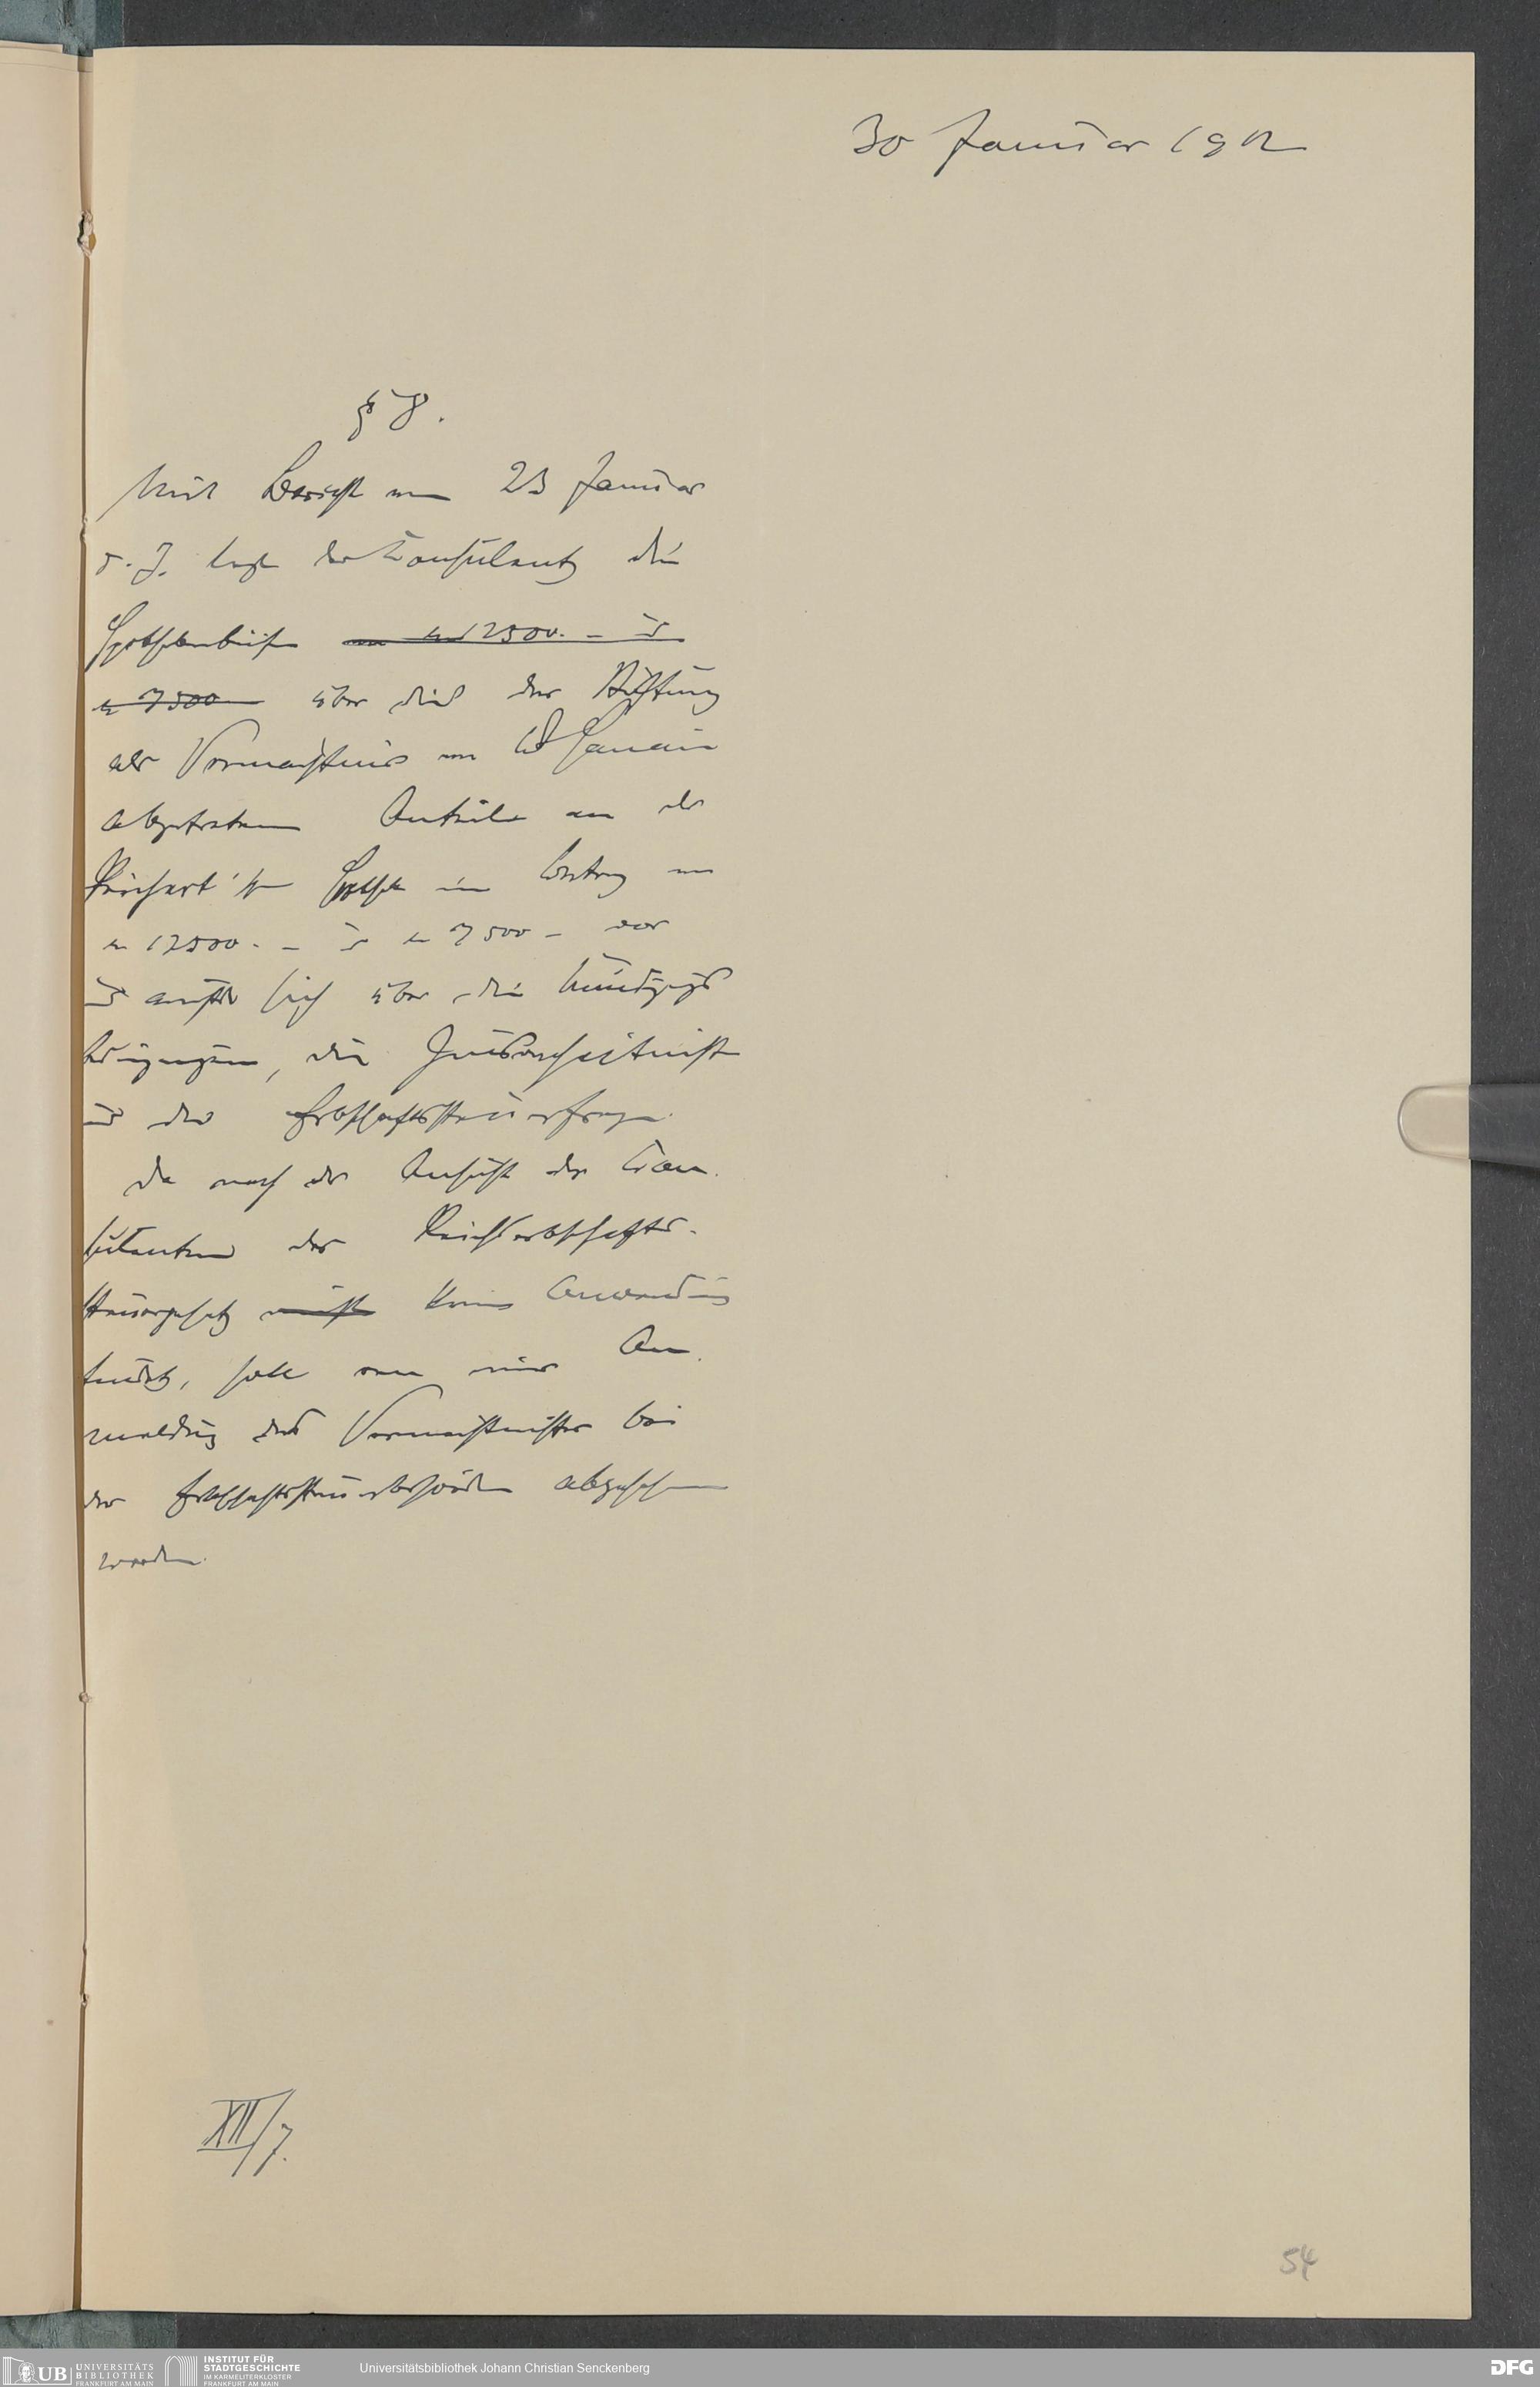 30 Januar 1912
§ 8.
Mit Bericht vom 23 Januar
d. J. legt der Consulent die
Hypothekenbriefe von M 12500.- u
M 7500 über die der Stiftung
als Vermächtnis von
abgetretenen Anteile an der
Hypothek im Betrag von
M 12500.- u M 7500 - vor
u äußert sich über die Kündigungs
bedingungen, die Zinsverhältnisse
u die Erbschaftssteuerfrage.
Da nach der Ansicht des Con.
sulenten das Reichserbschafts-
steuergesetz nicht keine Anwendung
findet, soll von einer An.
meldung des Vermächtnisses bei
der Erbschaftssteuerbehörde abgesehen
werden.
XII/7.
54
UB UNIVERSITÄTS BIBLIOTHEK FRANKFURT AM MAIN
INSTITUT FÜR STADTGESCHICHTE IM KARMELITERKLOSTER FRANKFURT AM MAIN
Universitätsbibliothek Johann Christian Senckenberg
DFG